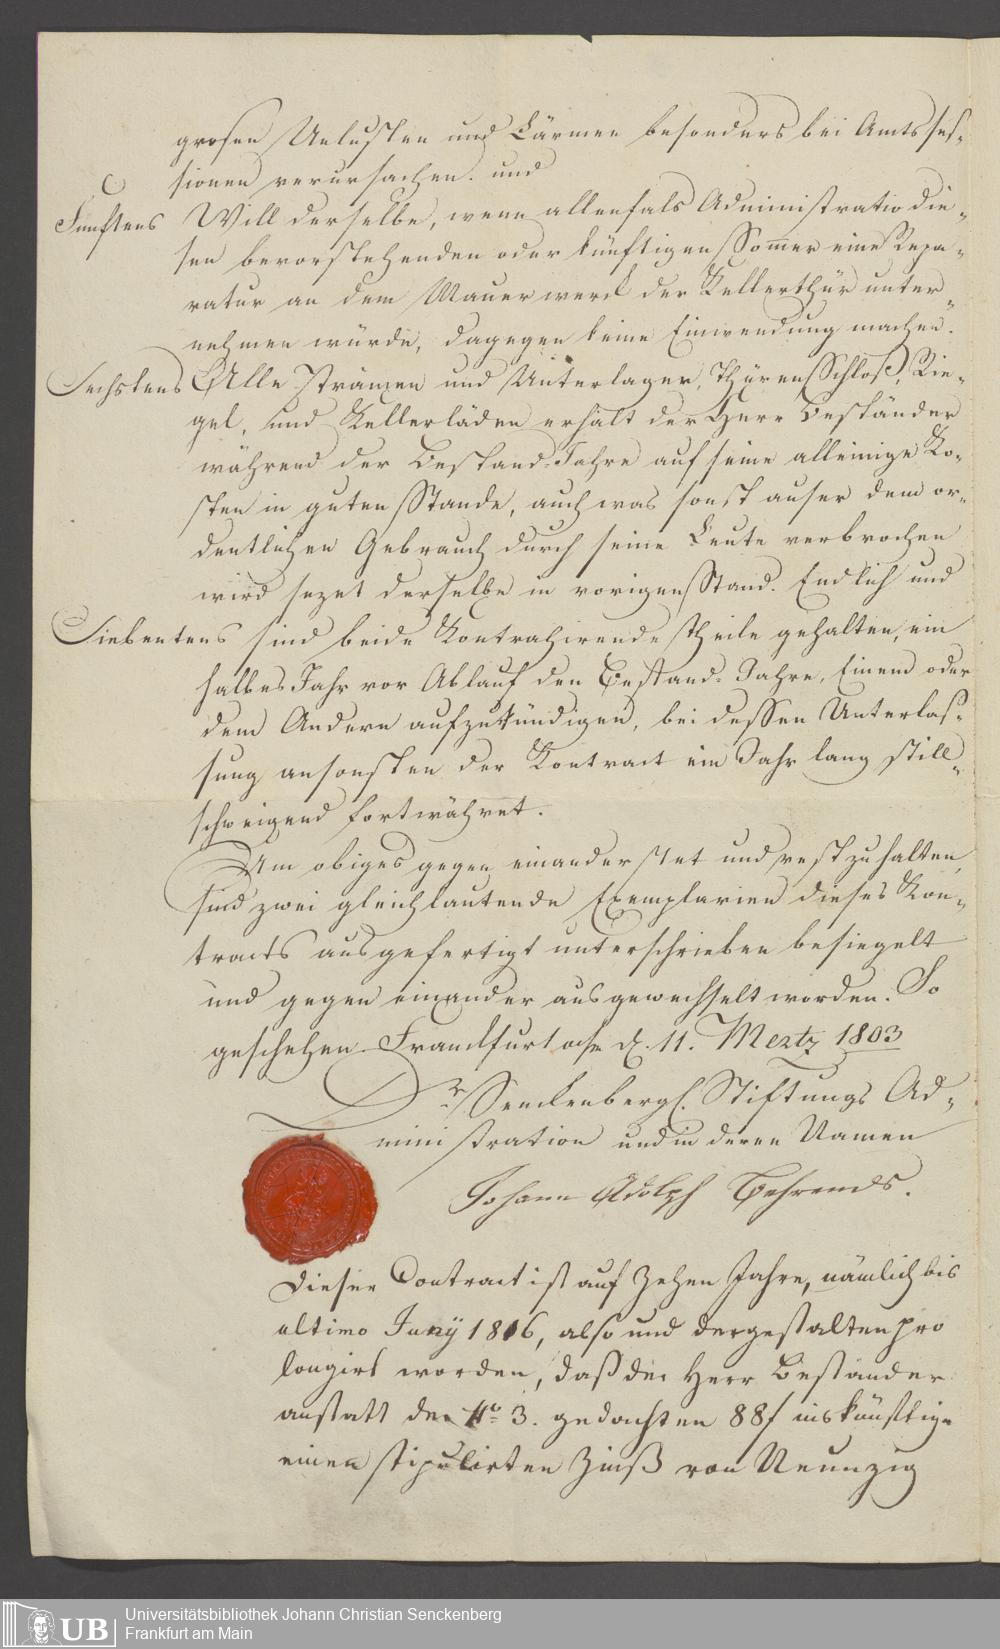 grosen Unlusten und Lärmen besonders bei Amtsses-
sionen verursachen. und
Fünftens Will derselbe, wenn allenfals Administratio die-
sen bevorstehenden oder künftigen Som̅er eine Repa-
ratur an dem Mauerwerck der Kellerthür unter-
nehmen würde, dagegen keine Einwendung machen.
Sechstens Alle Stränzen und Unterlager, Thüren Schloß, Rie-
gel, und Kellerläden erhält der Herr Beständer
während der Bestand-Jahre auf seine alleinige Ko-
sten in guten Stande, auch was sonst auser dem or-
dentlichen Gebrauch durch seine Leute verbrochen
wird sezet derselbe in vorigen Stand. Endlich und
Siebentens sind beide Kontrahirende theile gehalten, ein
halbes Jahr vor Ablauf den Bestand-Jahre, Einem oder
dem Andern aufzukündigen, bei dessen Unterlas-
sung ansonsten der Kontract ein Jahr lang still-
schweigend fortwähret.
Um obiges gegen einander stet und vest zu halten,
sind zwei gleichlautende Exemplarien dieses Kon-
tracts ausgefertigt unterschrieben besiegelt
und gegen einander ausgewechselt worden. So
geschehen Franckfurt d. 11. Mertz 1803
Dr Senckenbergl. Stiftungs Ad-
ministration und in deren Namen
Johann Adolph Behrends.
Dieser Contract ist auf Zehen Jahre, nämlich bis
ultimo Juny 1816, also und dergestalten pro
longirt worden, daß der Herr Beständer
anstatt der No 3. gedachten 88f inskünftige
einen stipulirten Zinß von Neunzig
Universitätsbibliothek Johann Christian Senckenberg
Frankfurt am Main
UB